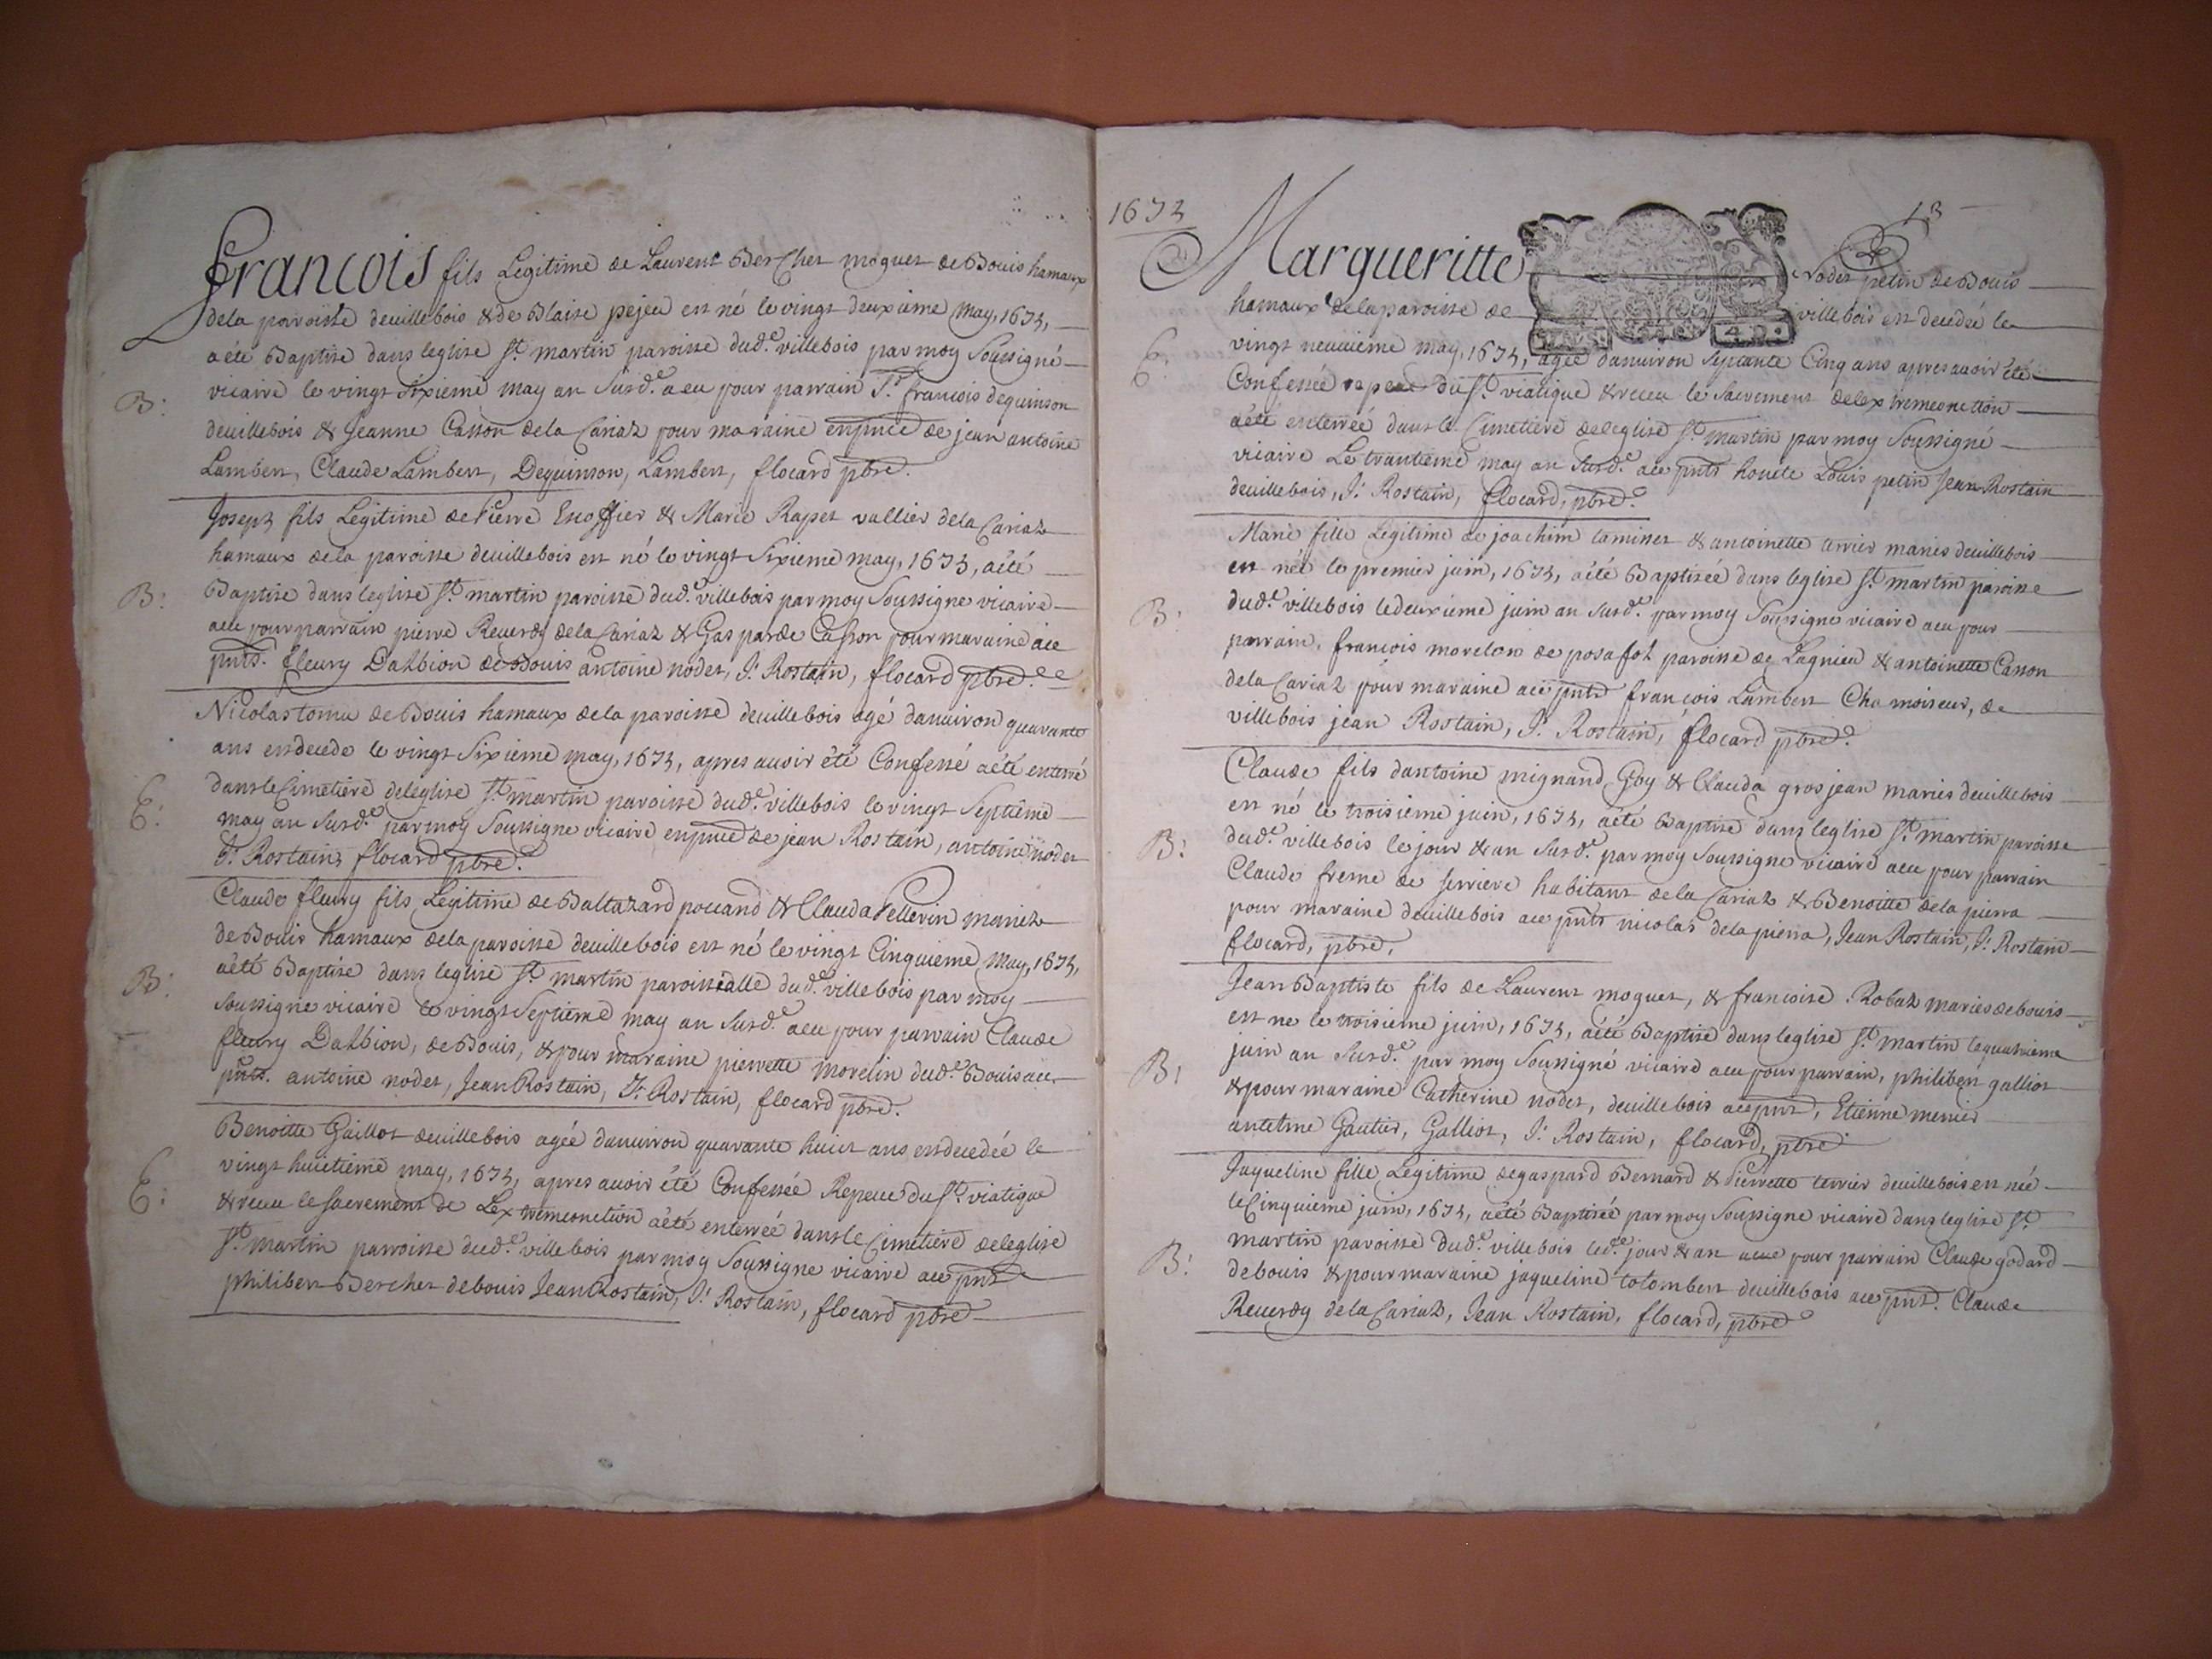 Francois fils Legitime de Laurent Berchet moguet de Bouis hamaux
dela paroisse deuillebois & de Blaise pejeu est né le vingt deuxiéme may, 1673,
a été Baptisé dans leglise St. martin paroisse dud.e villebois par moy Soussigné
B:
vicaire le vingt Sixieme may an Susd.e a eu pour parrain Sr. francois dequinson
deuillebois & Jeanne Casson dela Cariaz pour maraine enpnce de jean antoine
Lambert, Claude Lambert, Dequinson, Lambert, flocard pbre.
Joseph fils Legitime de Pierre & Marie Rapet vallier dela Cariaz
hamaux dela paroisse deuillebois est né le vingt Sixieme may, 1673, aété
B:
Baptisé dans leglise St. martin paroisse dud.e villebois par moy Soussigne vicaire
aeu pour parrain pierre Reuerdy dela Cariaz & Gasparde Casson pour maraine ace
pnts. fleury Dalbion de Bouis antoine nodet, J. Rostain, flocard pbre.
Nicolas tomu de Bouis hamaux dela paroisse deuillebois agé danuiron quarante
ans estdecede le vingt Sixieme may, 1673, apres auoir été Confessé aété enterré
E:
dans le Cimetiere deleglise St. martin paroisse dud.e villebois le vingt Septiéme
may an Susd.e par moy Soussigne vicaire enpnce de jean Rostain, antoine nodet
J. Rostain, flocard pbre.
Claude fleury fils Legitime de Baltazard pouuand & Clauda Pellerin mariez
de Bouis hamaux dela paroisse deuillebois est né le vingt Cinquieme may, 1673,
B:
aété Baptisé dans leglise St. martin paroissialle dud.e villebois par moy
Soussigne vicaire le vingt Septieme may an Susd.e aeu pour parrain Claude
fleury Dalbion, de Bouis, & pour maraine pierrette morelin dud.e Bouis ace
pnts. antoine nodet, Jean Rostain, J. Rostain, flocard pbre.
Benoitte Gaillot deuillebois agée danuiron quarante huict ans estdecedée le
vingt huictieme may, 1673, apres auoir été Confessée Repeue du St. viatique
E:
& receu le sacrement de Lextremeonction aété enterrée dans le Cimetiere deleglise
St. martin parroisse dud.e villebois par moy Soussigne vicaire ace pnts
philibert Berchet debouis Jean Rostain, J. Rostain, flocard pbre
1673
13
Margueritte Nodet petin de Bouis
hamaux dela paroisse de villebois est decedée le
E:
vingt neuuieme may, 1673, agée danuiron Septante Cinq ans apres auoir été
Confessée repeue du St. viatique & receu le Sacrement delextremeonction
aété enterrée dans le Cimetiere deleglise St. martin par moy Soussigné
vicaire Le trantieme may an Susd.e ace pnts honete Louis petin Jean Rostain
deuillebois, J. Rostain, flocard, pbre.
Marie fille Legitime de joachim taminet & antoinette terrier mariés deuillebois
est née le premier juin, 1673, aété Baptisée dans leglise St. martin paroisse
B:
dud.e villebois le deuxiéme juin an Susd.e par moy Soussigne vicaire aeu pour
parrain, francois morelon de posafol paroisse de Lagnieu & antoinette Casson
dela Cariaz pour maraine ace pnts françois Lambert Chamoiseur, de
villebois jean Rostain, J. Rostain, flocard pbre.
Claude fils dantoine mignand Goy & Clauda grosjean mariés deuillebois
est né le troisieme juin, 1673, aété Baptisé dans leglise St. martin paroisse
B:
dud.e villebois le jour & an Susd.e par moy Soussigne vicaire aeu pour parrain
Claude freme de serriere habitant dela Cariaz & Benoitte dela pierra
pour maraine deuillebois ace pnts nicolas dela pierra, Jean Rostain, J. Rostain
flocard, pbre.
Jean Baptiste fils de Laurent moguet, & francoise Robaz mariés debouis
est ne le troisieme juin, 1673, aété Baptisé dans leglise St. martin le quatrieme
B:
juin an Susd.e par moy Soussigné vicaire aeu pour parrain, philibert galliot
& pour maraine Catherine nodet, deuillebois ace pnts, Etienne menier
antelme Gautier, Galliot, J. Rostain, flocard, pbre
Jaqueline fille Legitime de gaspard Bernard & Pierrette terrier deuillebois est née
le Cinquieme juin, 1673, aété Baptisée par moy Soussigne vicaire dans leglise St.
B:
martin paroisse dud.e villebois led.e jour & an aeue pour parrain Claude godard
debouis & pour maraine jaqueline tolombert deuillebois ace pnts. Claude
Reuerdy dela Cariaz, Jean Rostain, flocard, pbre